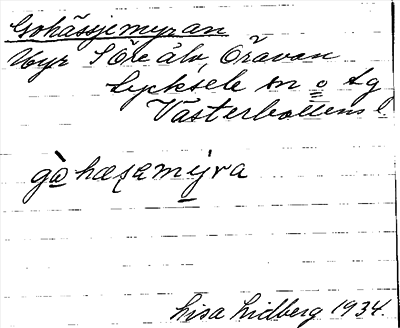 Gohässjemyran
Myr S Öre älv, Öravan
Lycksele sn o Lg
Västerbottens l.
gɷ̀hæʂɐmýra
Lisa Lidberg 1934.